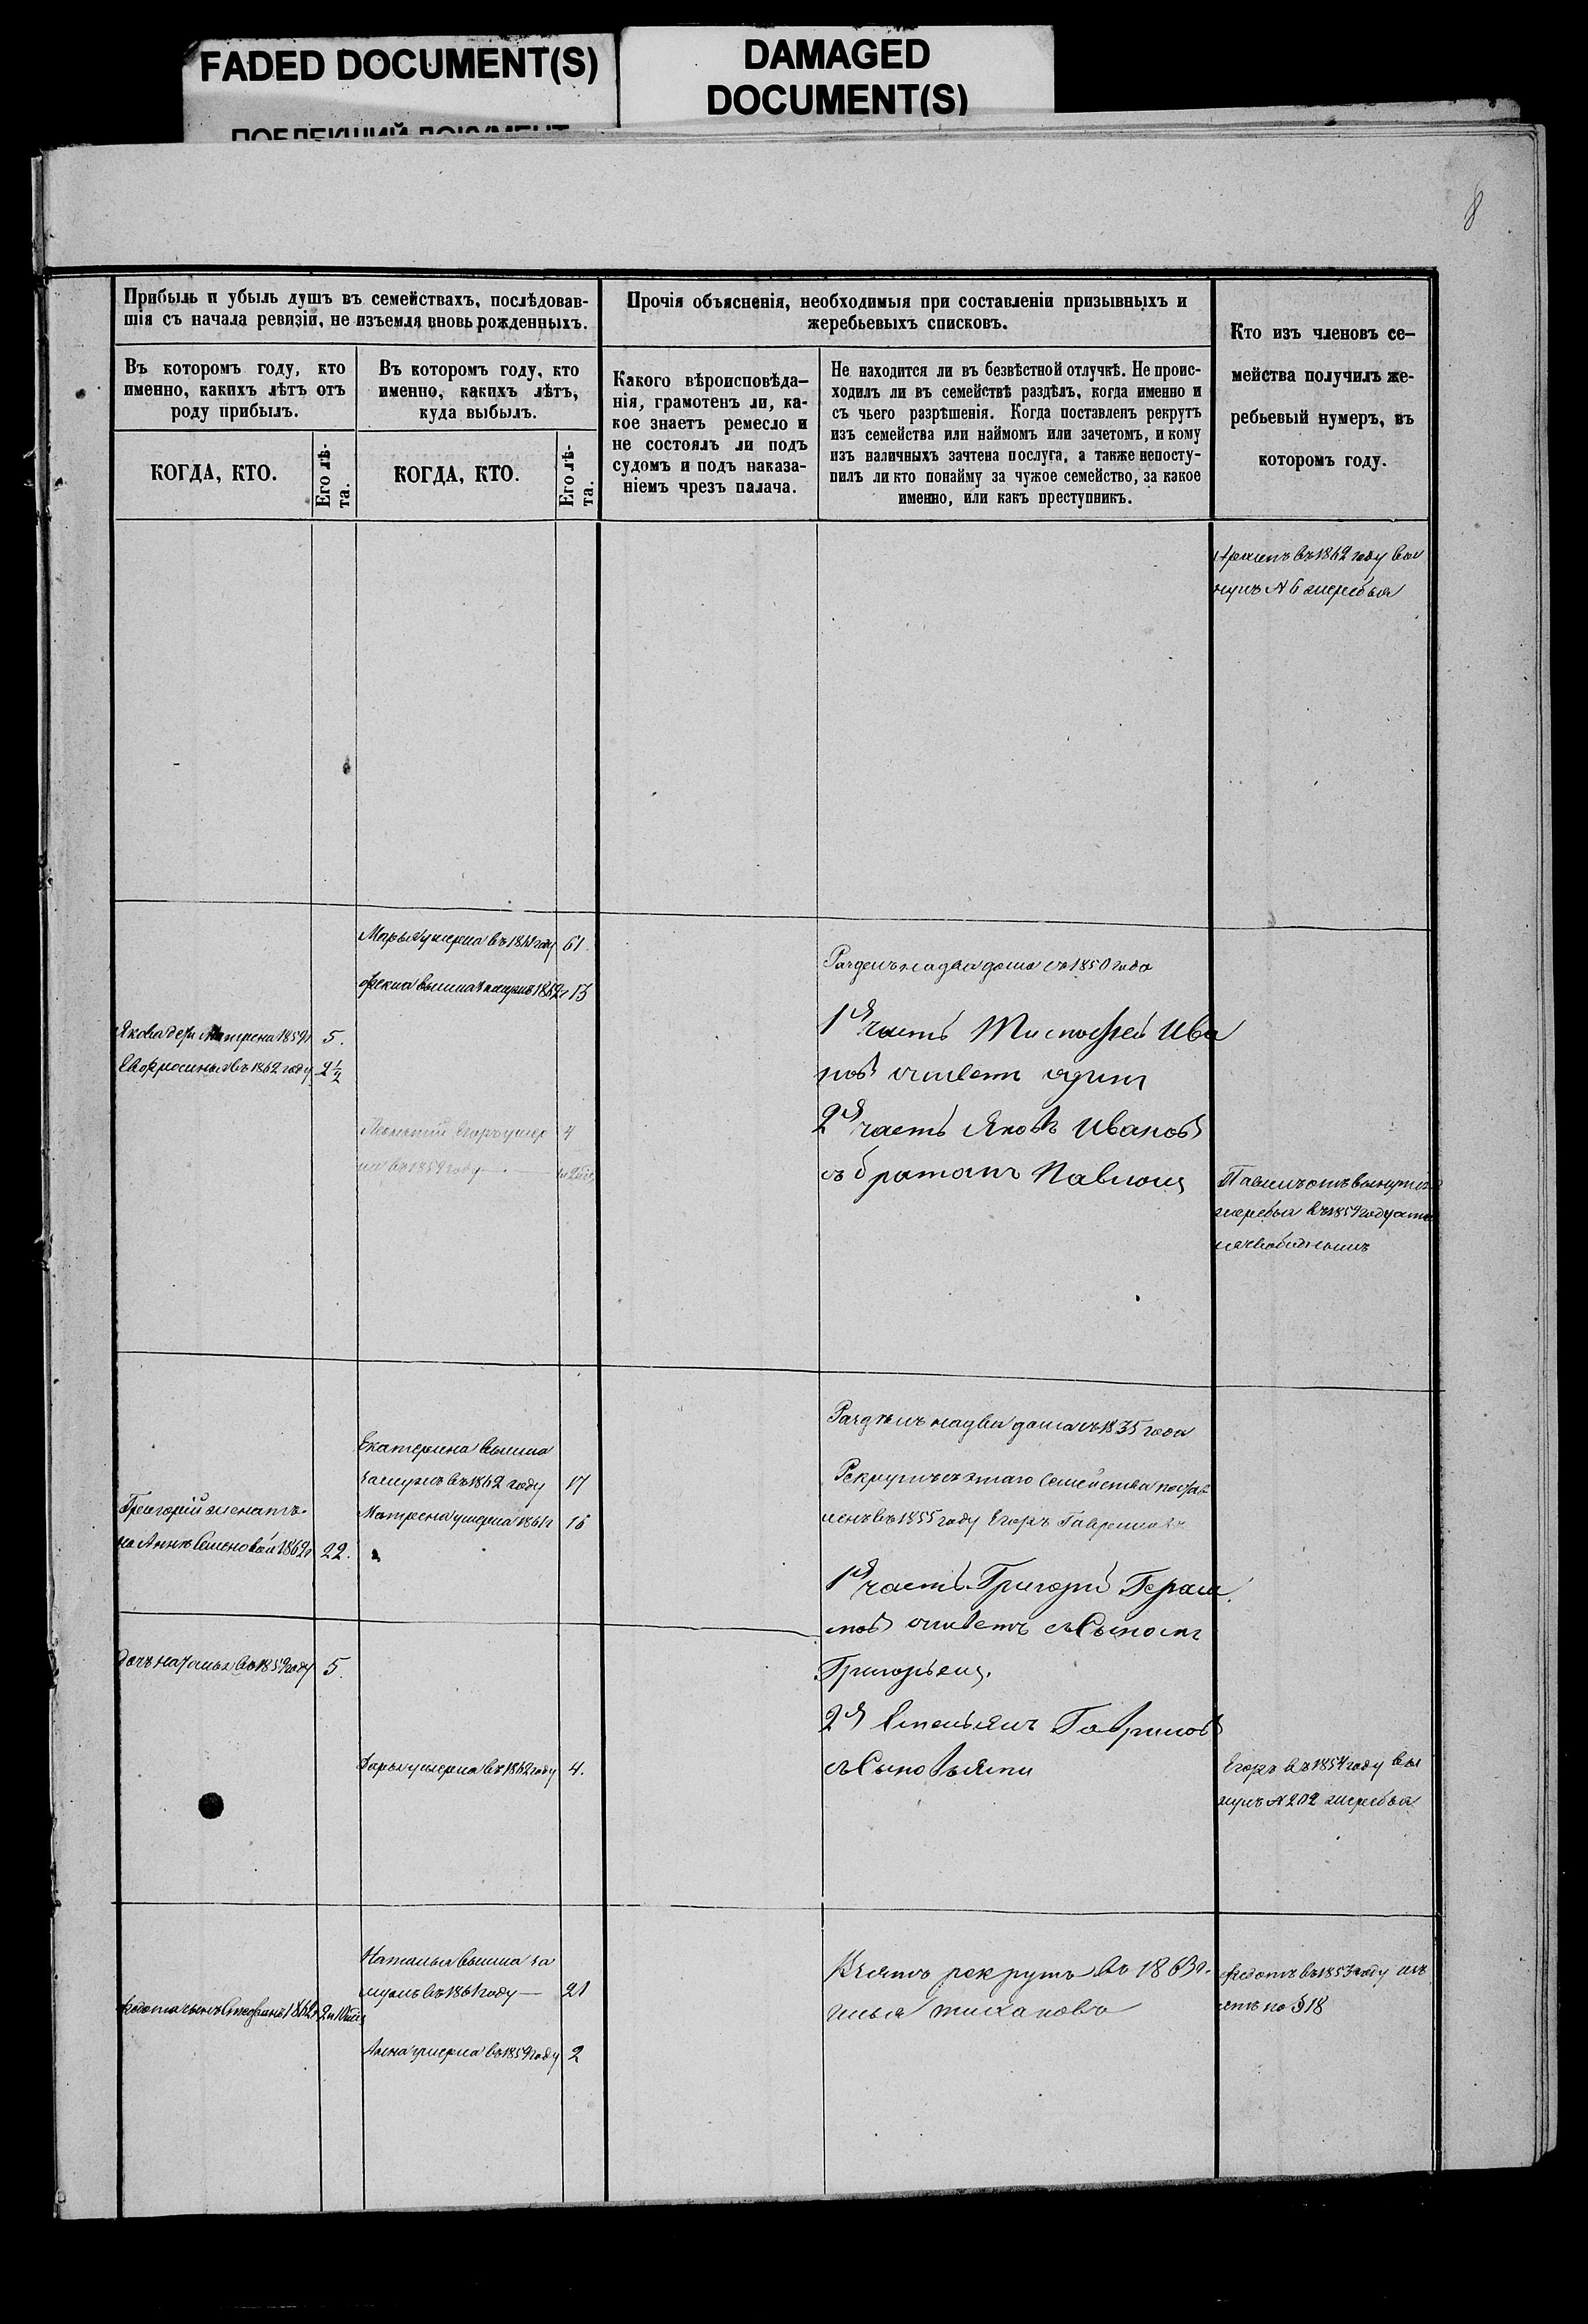 FADED DOCUMENT(S)
DAMAGED
DOCUMENT(S)
8
Прибыль и убыль душъ въ семействахъ, послѣдовав-
шія съ начала ревизіи, не изъемля вновь рожденныхъ.
Въ которомъ году, кто
именно, какихъ лѣтъ отъ
роду прибылъ.
КОГДА, КТО.
Его лѣ-
та.
Въ которомъ году, кто
именно, какихъ лѣтъ,
куда выбылъ.
КОГДА, КТО.
Его лѣ-
та.
Прочія объясненія, необходимыя при составленіи призывныхъ и
жеребьевыхъ списковъ.
Какого вѣроисповѣда-
нія, грамотенъ ли, ка-
кое знаетъ ремесло и
не состоялъ ли подъ
судомъ и подъ наказа-
ніемъ чрезъ палача.
Не находится ли въ безвѣстной отлучкѣ. Не проис-
ходилъ ли въ семействѣ раздѣлъ, когда именно и
съ чьего разрѣшенія. Когда поставленъ рекрутъ
изъ семейства или наймомъ или зачетомъ, и кому
изъ наличныхъ зачтена послуга, а также непосту-
пилъ ли кто понайму за чужое семейство, за какое
именно, или какъ преступникъ.
Кто изъ членовъ се-
мейства получилъ же-
ребьевый нумеръ, въ
которомъ году.
въ 1862 году вы
нулъ N 6 жеребья
Марья умерла въ году 61.
Фекла вышла замужъ 1862 г 13
Раздѣлъ на два дома съ 1850 года
1я часть Тимофей Ива
новъ живетъ одинъ
Якова дочь Матрена 1859 г 5.
Ефросинья въ 1862 году 2 1/2
2я часть Яковъ Ивановъ
съ братомъ Павломъ
Егоръ умер 4
въ 1859 году
Павелъ отъ вынутія
жеребья въ 1859 году
Раздѣлъ на два дома съ 1835 года
Екатерина вышла
замужъ въ 1862 году 17
Рекрутъ съ этаго семейства постав
ленъ въ 1855 году Егоръ Гавриловъ
Матрена умерла 1861 г 16
Григорій женатъ
на Аннѣ Семеновой 1862 г 22.
1я часть Григорій Гераси
мовъ живетъ съ Сыномъ
Григорьемъ.
дочь Наталья въ 1859 году 5.
2я Емельянъ Гавриловъ
съ Сыновьями
Дарья умерла въ 1862 году 4.
Егоръ въ 1854 году вы
нулъ N 202 жеребья
Наталья вышла за
мужъ въ 1861 году — 21
Взятъ рекрутъ въ 1863 г.
Илья Тихановъ
Федотъ въ 1853 году изъ
ятъ по § 18
Федота сынъ Степанъ 1862 г 2 и 10 мѣс
Анна умерла въ 1859 году 2